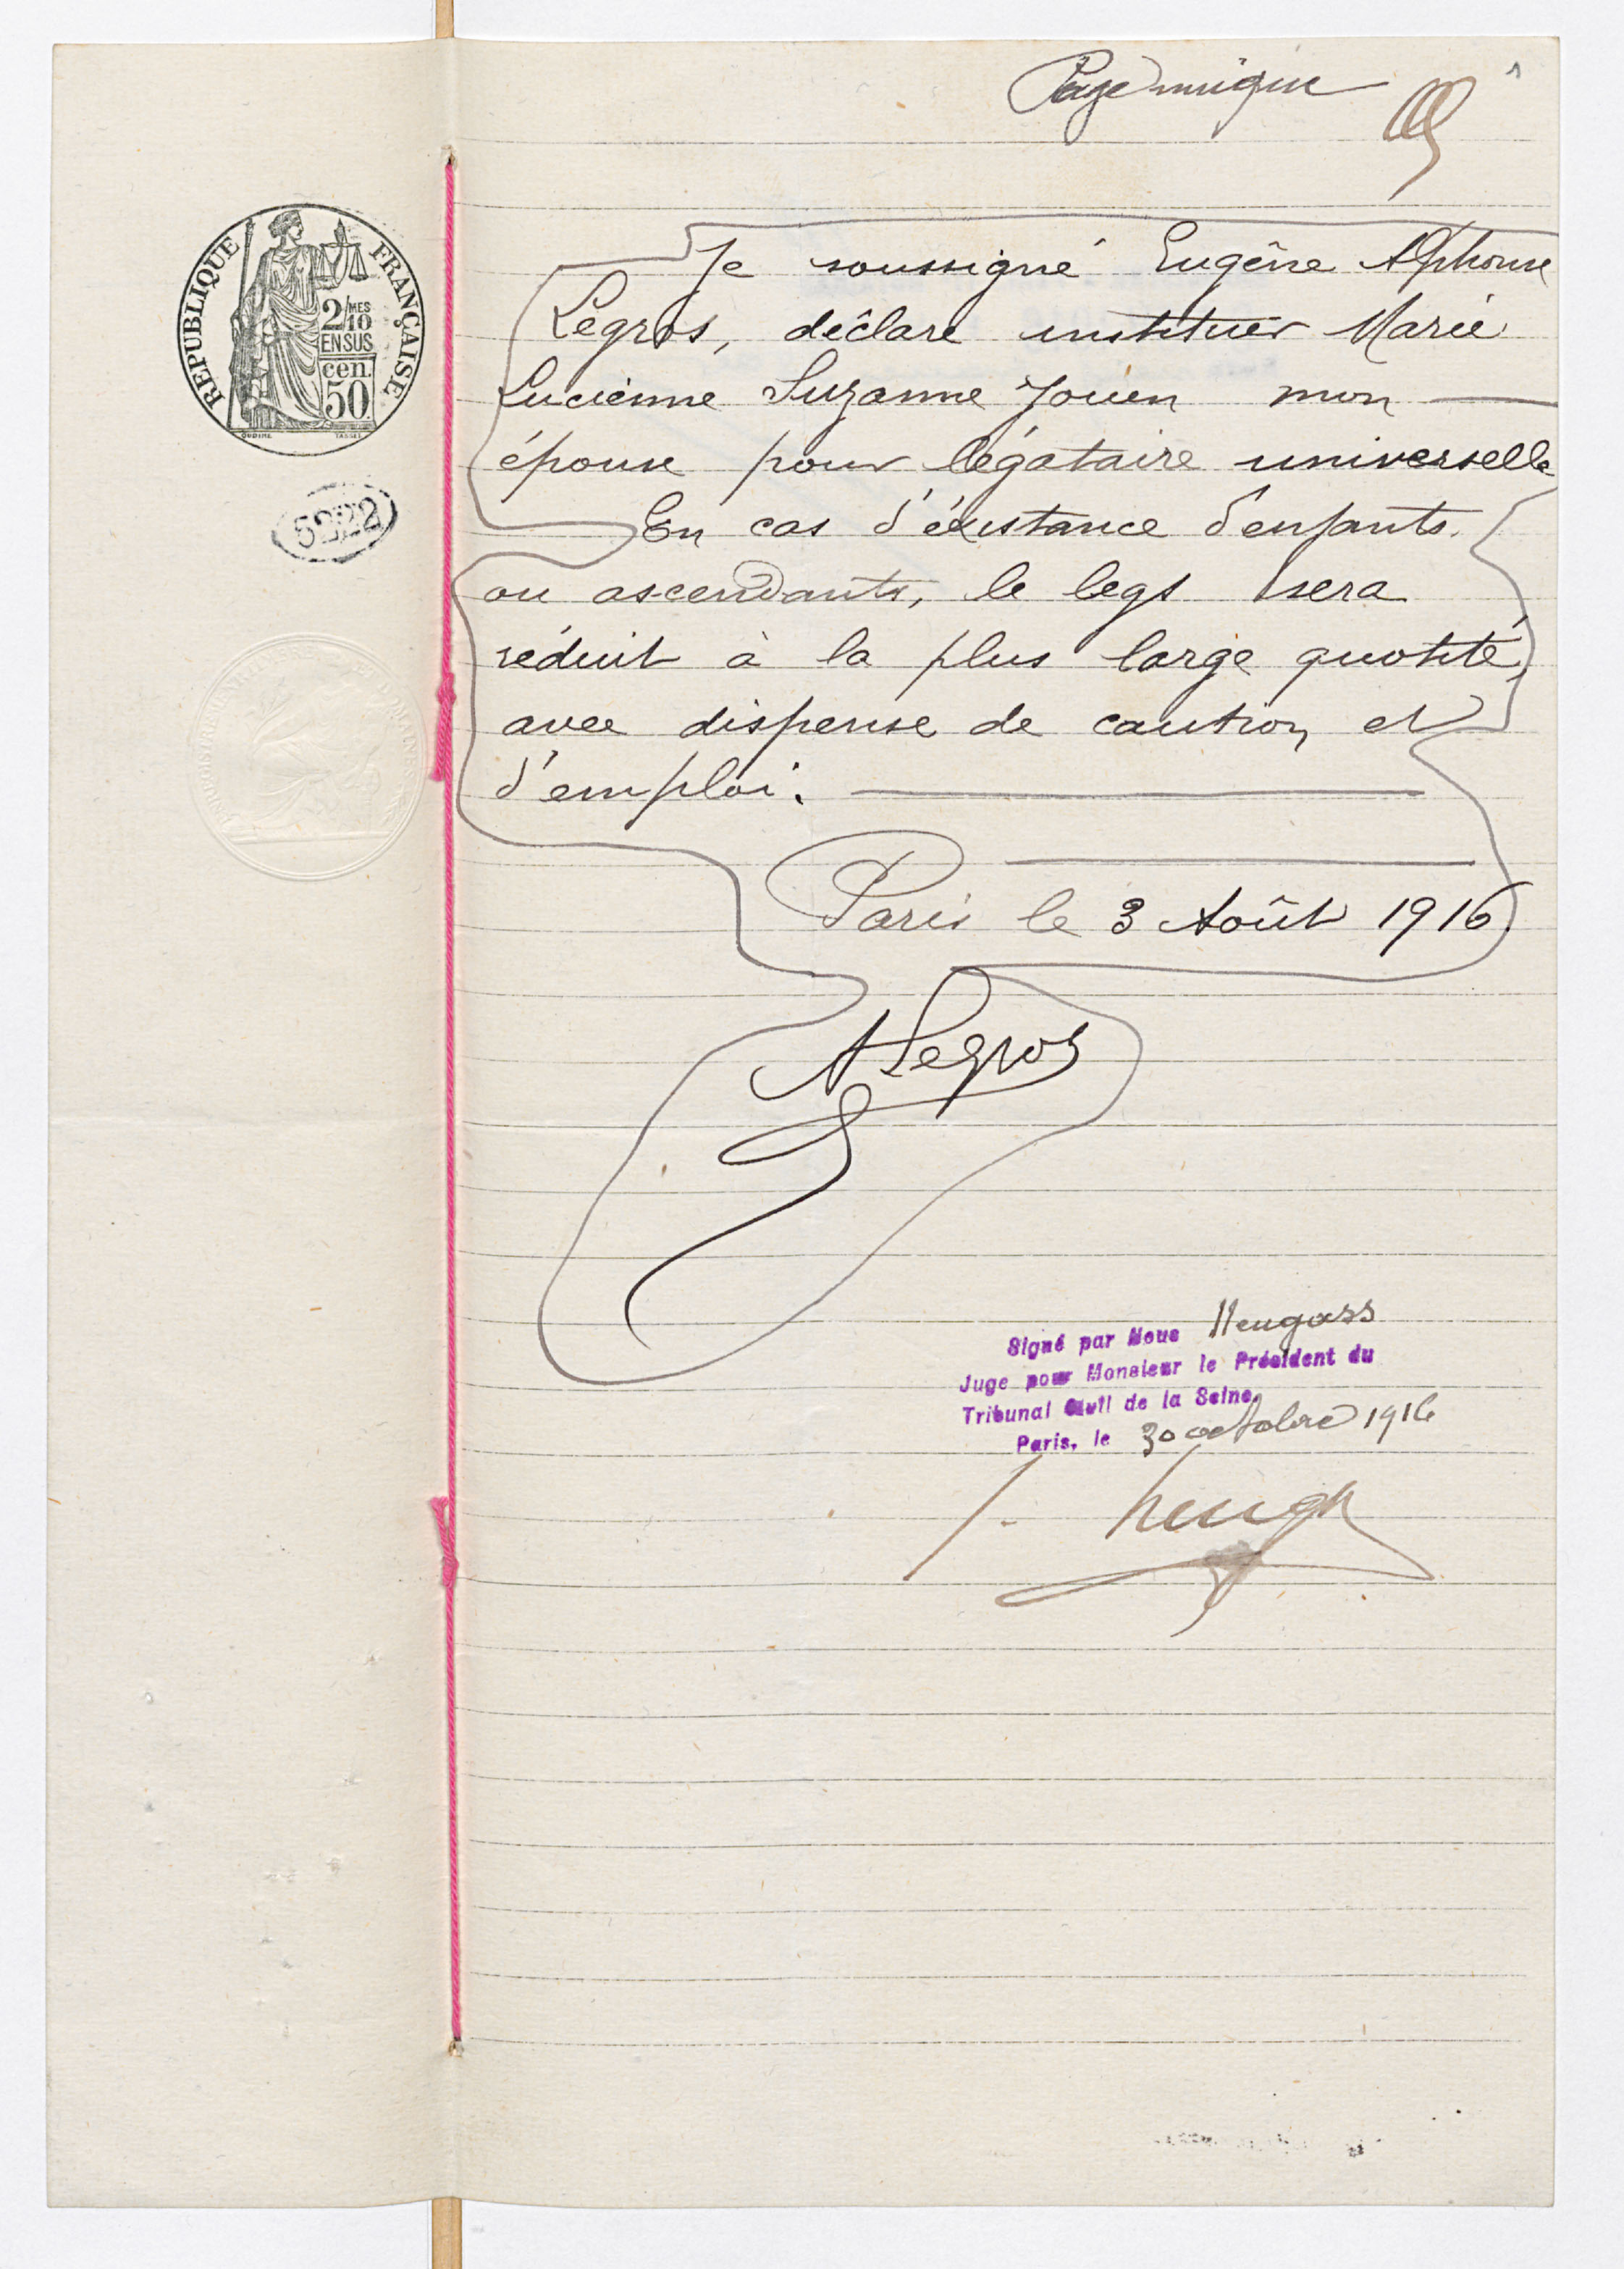 Page unique
1
REPUBLIQUE FRANÇAISE
2/10 MES
EN SUS
cen.
50
OUDINÉ TASSET
5222
Je soussigné Eugène Alphonse
Legros, déclare instituer Marie
Lucienne Suzanne Jouen mon
épouse pour légataire universelle
En cas d'éxistance d'enfants
ou ascendants, le legs sera
réduit à la plus large quotité,
avec dispense de caution et
d'emploi.
Paris le 3 Août 1916
A Legros
Signé par Nous Neugass
Juge pour Monsieur le Président du
Tribunal Civil de la Seine.
Paris, le 30 octobre 1916